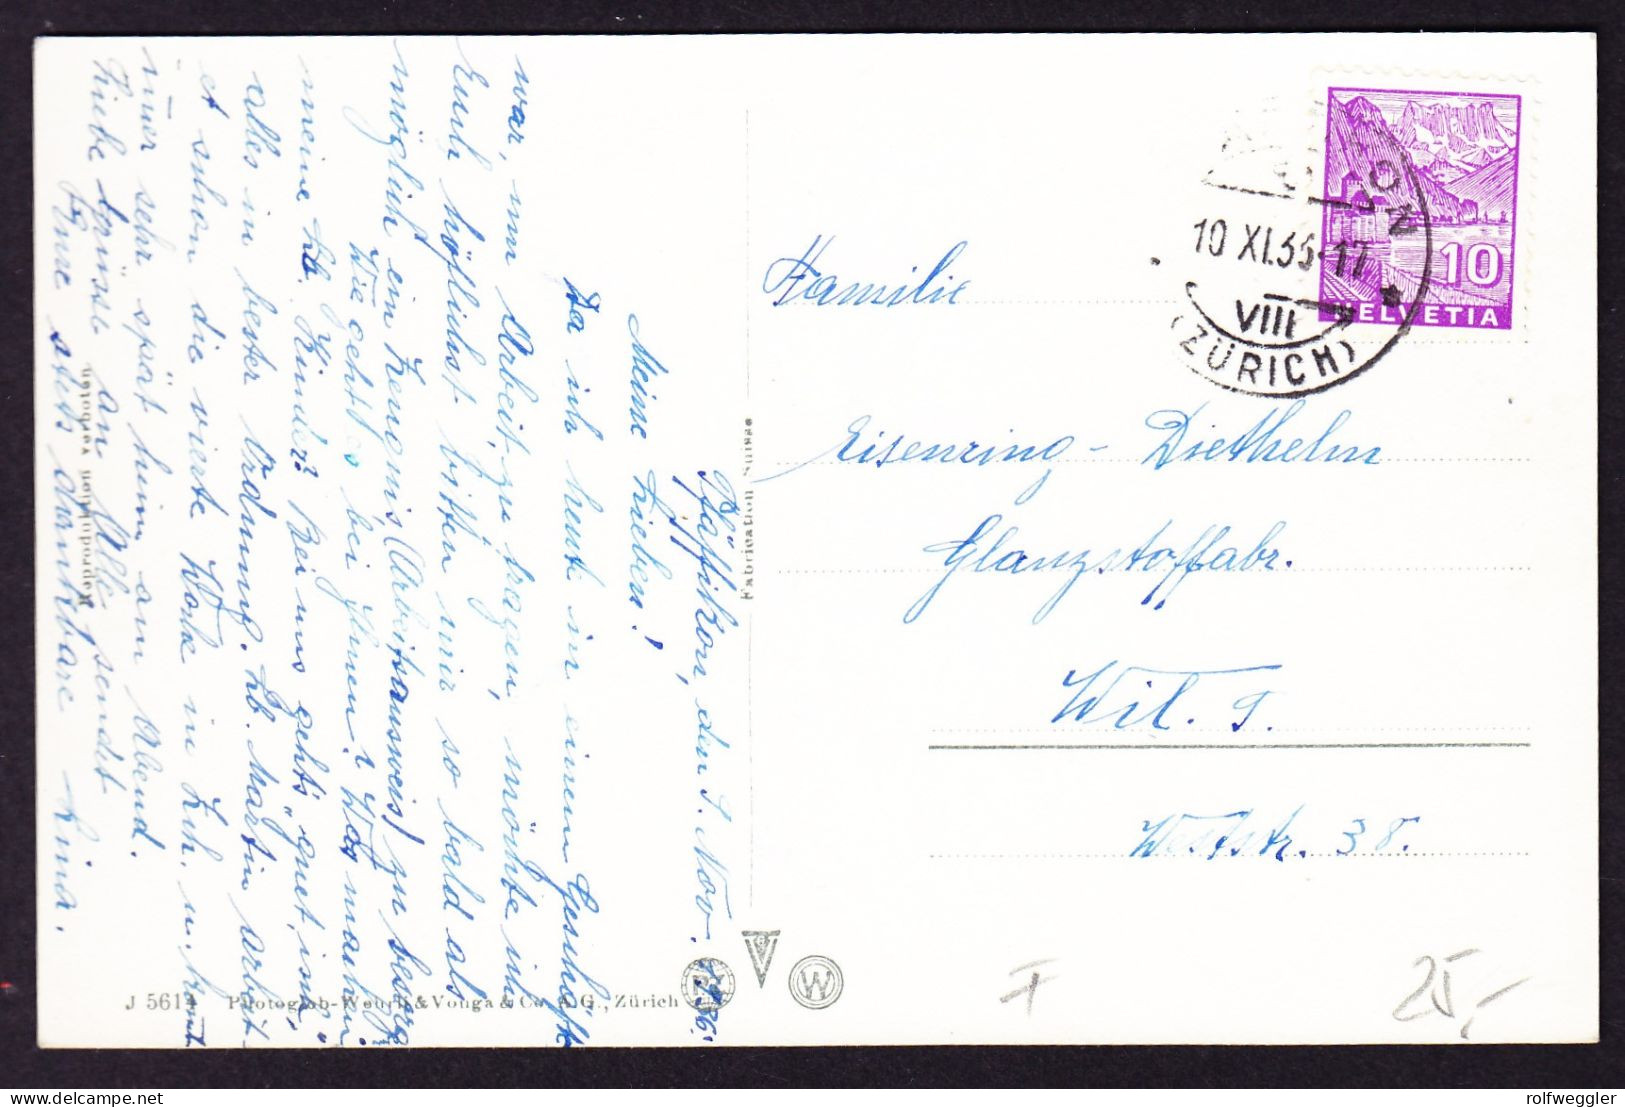 Pfäffikon, den 8. Nov. 1936.
Meine Lieben!
Da ich heute in einem Geschäft
war, um Arbeit zu fragen, möchte ich
Euch höflichst bitten mir so bald als
möglich ein Zeugnis (Arbeitsausweis) zu besorgen
Wie geht es bei Ihnen? Was machen
meine lb. Kinder? Bei uns geht's guet, isch
alles in bester Ordnung. Lb. Martin arbeit-
et schon die vierte Woche in Zch. u. kommt
immer sehr spät heim am Abend.
Liebe Grüsse an Alle sendet
Eure stets dankbare Lina.
Reproduction verboten
Fabrication Suisse
J 5614 Photoglob-Wehrli & Vouga & Co. A.G., Zürich
W
10 XI.36-17
VIII
(ZÜRICH)
10
HELVETIA
Familie
Eisenring - Diethelm
Glanzstoffabr.
Wil.
Weststr. 38.
25,-
rolfweggler